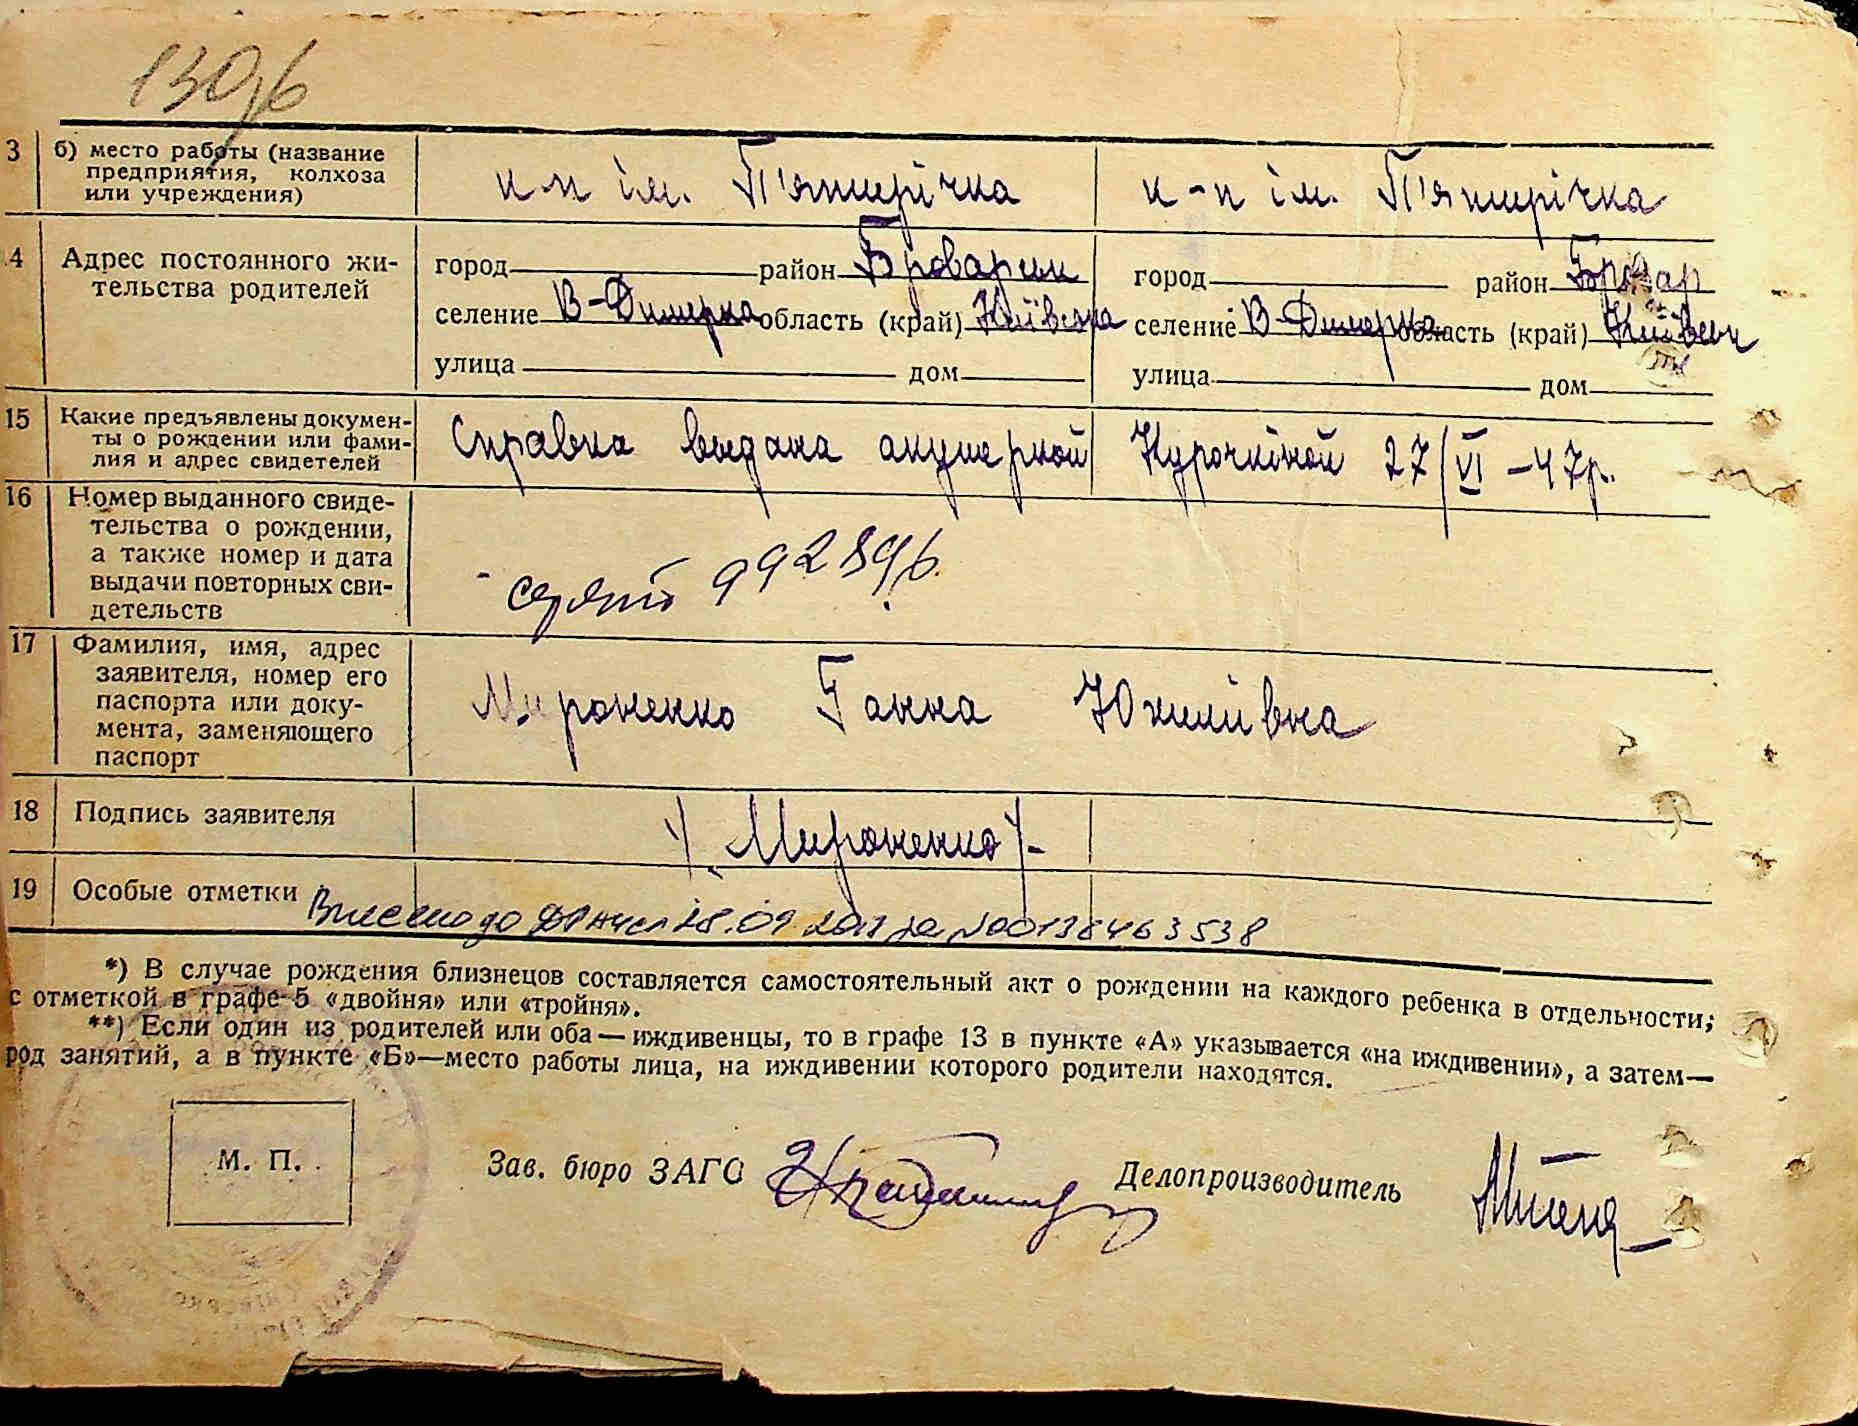 130б
3 б) место работы (название предприятия, колхоза или учреждения) к-п ім. П'ятирічка к-п ім. П'ятирічка
14 Адрес постоянного жительства родителей
город район Броварськ город район Бровар
селение В-Димерка область (край) Київська селение В-Димерка область (край) Київськ
улица дом улица дом
15 Какие предъявлены документы о рождении или фамилия и адрес свидетелей Справка выдана акушеркой Курочкіной 27/VI-47р.
16 Номер выданного свидетельства о рождении, а также номер и дата выдачи повторных свидетельств
17 Фамилия, имя, адрес заявителя, номер его паспорта или документа, заменяющего паспорт Мироненко Ганна Юхимівна
18 Подпись заявителя /Мироненко/-
19 Особые отметки Внесено до 28.09 за №00138463538
*) В случае рождения близнецов составляется самостоятельный акт о рождении на каждого ребенка в отдельности;
с отметкой в графе 5 «двойня» или «тройня».
**) Если один из родителей или оба — иждивенцы, то в графе 13 в пункте «А» указывается «на иждивении», а затем—
род занятий, а в пункте «Б»—место работы лица, на иждивении которого родители находятся.
М. П.
Зав. бюро ЗАГС Делопроизводитель